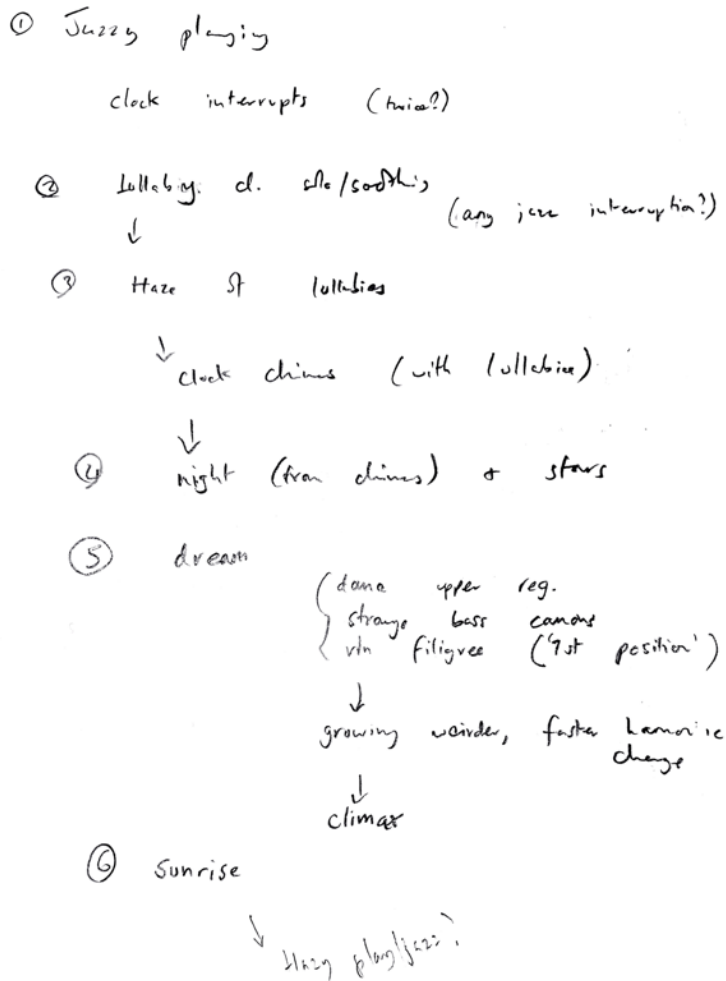 ① Jazzy playing
clock interrupts (twice?)
② Lullaby. cl. solo/soothing
(any jazz interruption?)
↓
③ Haze of lullabies
↓
clock chimes (with lullabies)
↓
④ night (from chimes) + stars
⑤ dream
dance upper reg.
strange bass canons
vln filigree ('1st position')
↓
growing weirder, faster harmonic
change
↓
climax
⑥ Sunrise
↓
Hazy play/jazz?